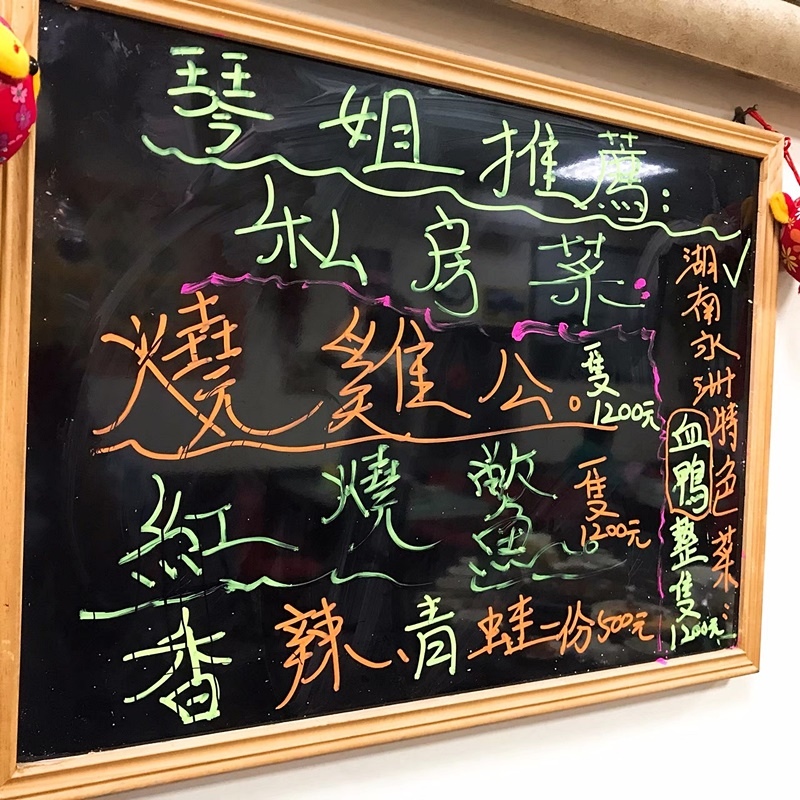 琴姐推薦:
私房菜:
燒雞公。隻1200元
紅燒鱉隻1200元
香辣、青蛙一份500元
湖南永洲特色菜:
血鴨整隻1200元